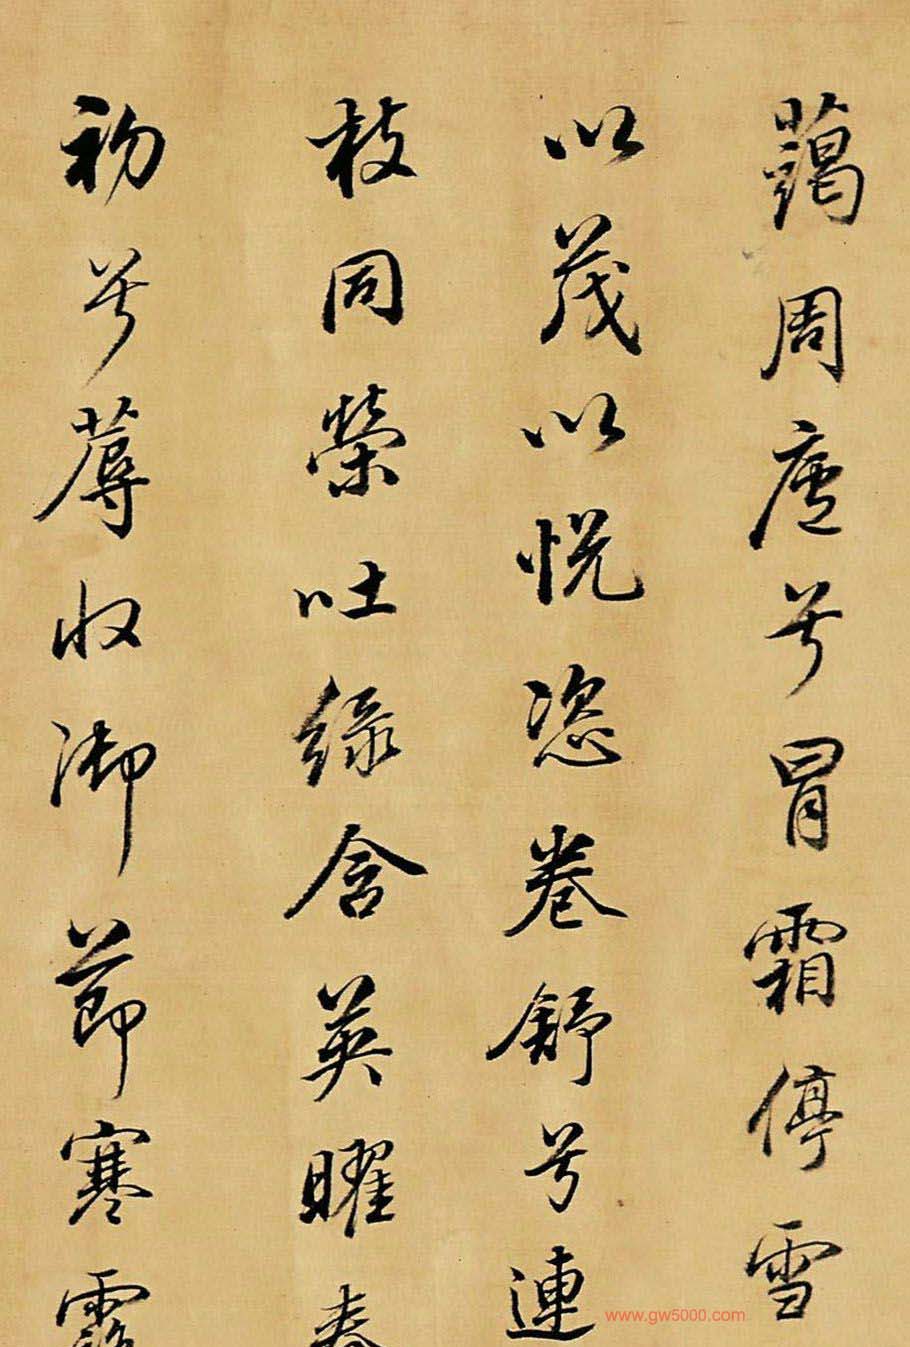 藹周廬兮冒霜停雪
以茂以悅恣卷舒兮連
枝同榮吐綠含英曜春
初兮蓐收御節寒露
www.gw5000.com